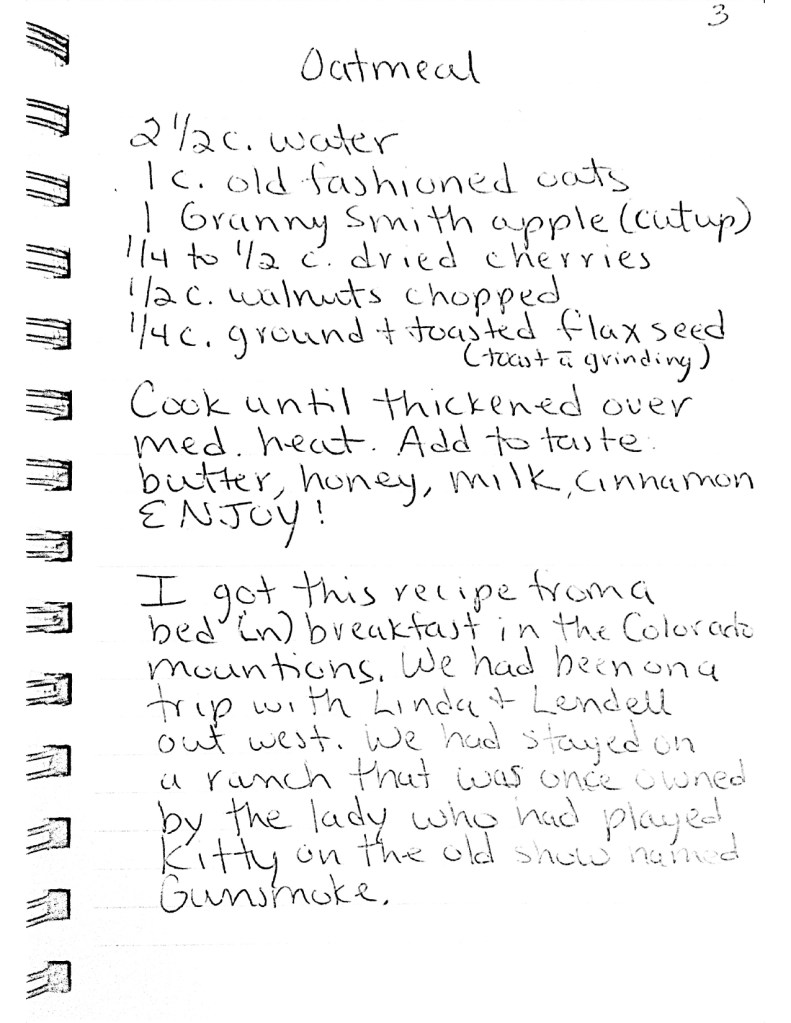 3
Oatmeal
2 1/2 c. water
1 c. old fashioned oats
1 Granny Smith apple (cut up)
1/4 to 1/2 c. dried cherries
1/2 c. walnuts chopped
1/4 c. ground + toasted flax seed
(toast ā grinding)
Cook until thickened over
med. heat. Add to taste:
butter, honey, milk, cinnamon
ENJOY!
I got this recipe from a
bed (n) breakfast in the Colorado
mountions. We had been on a
trip with Linda + Lendell
out west. We had stayed on
a ranch that was once owned
by the lady who had played
Kitty on the old show named
Gunsmoke.